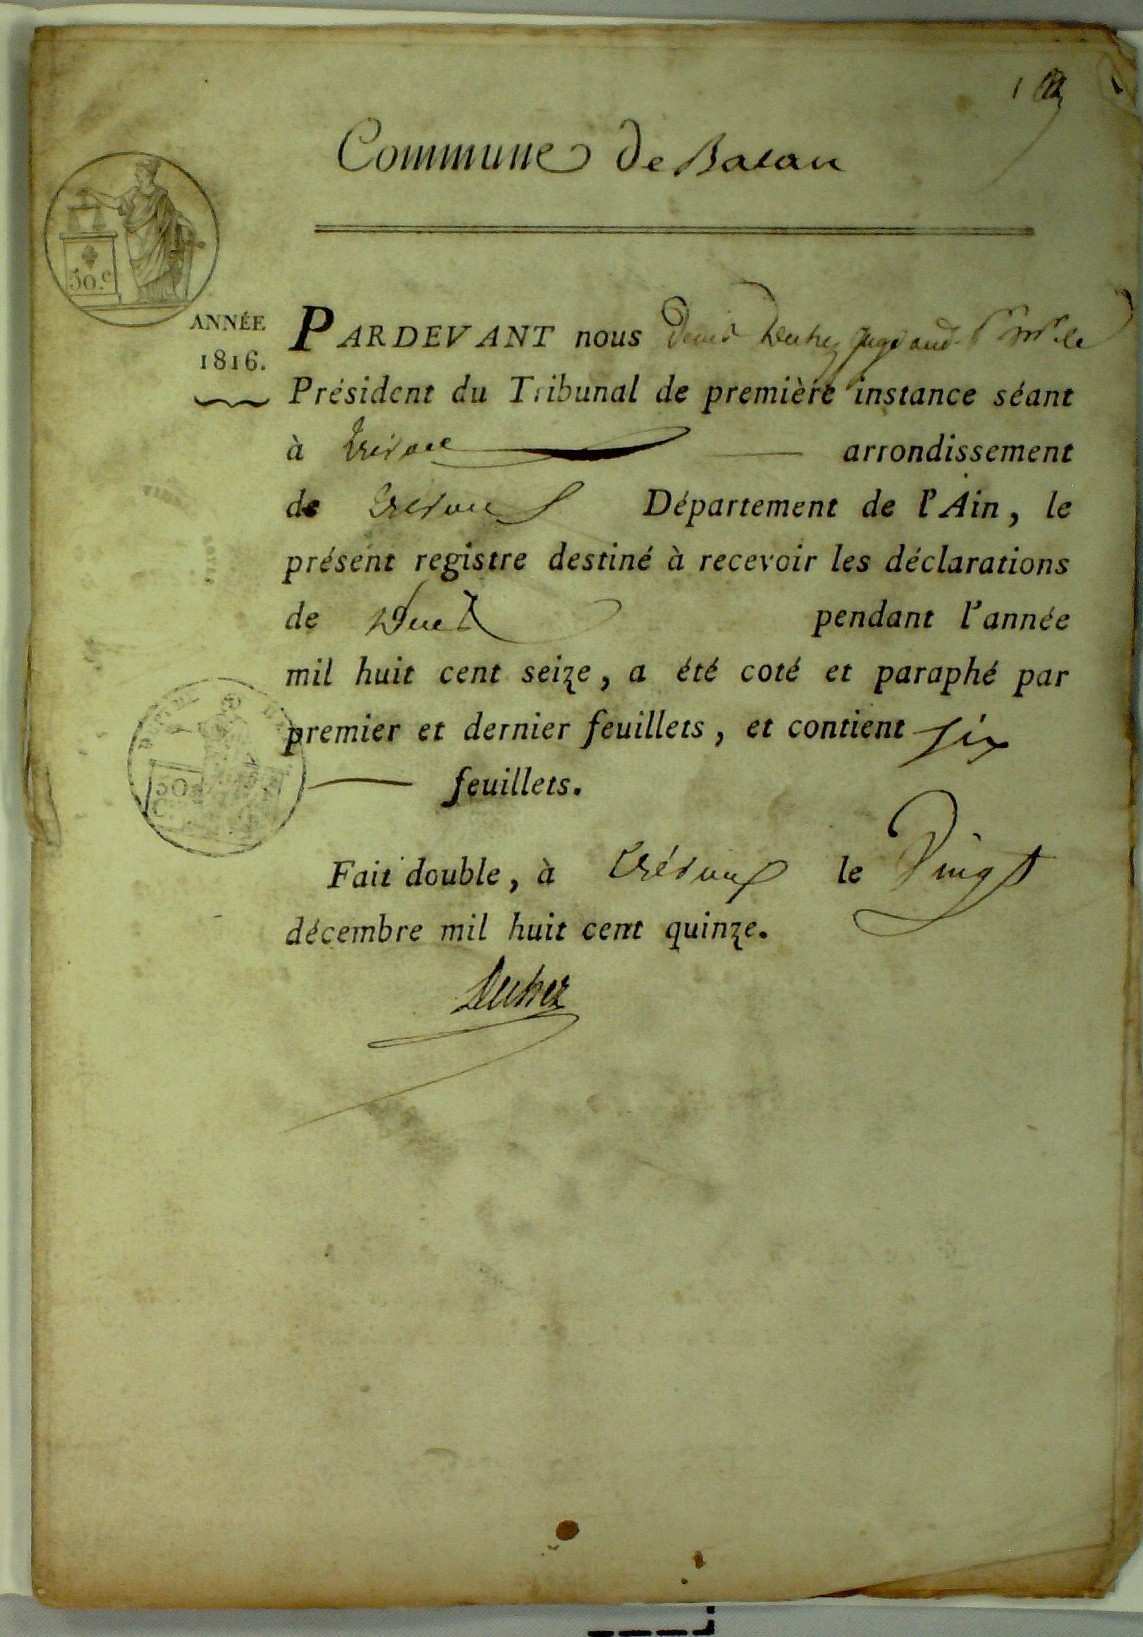 1
Commune de Balan
50.c
ANNÉE
1816.
PARDEVANT nous Denis Dutrez juge aud. pr Mr le
Président du Tribunal de première instance séant
à Trévoux arrondissement
de Trévoux Département de l'Ain, le
présent registre destiné à recevoir les déclarations
de pendant l'année
mil huit cent seize, a été coté et paraphé par
premier et dernier feuillets, et contient six
feuillets.
50
C.
Fait double, à Trévoux le Vingt
décembre mil huit cent quinze.